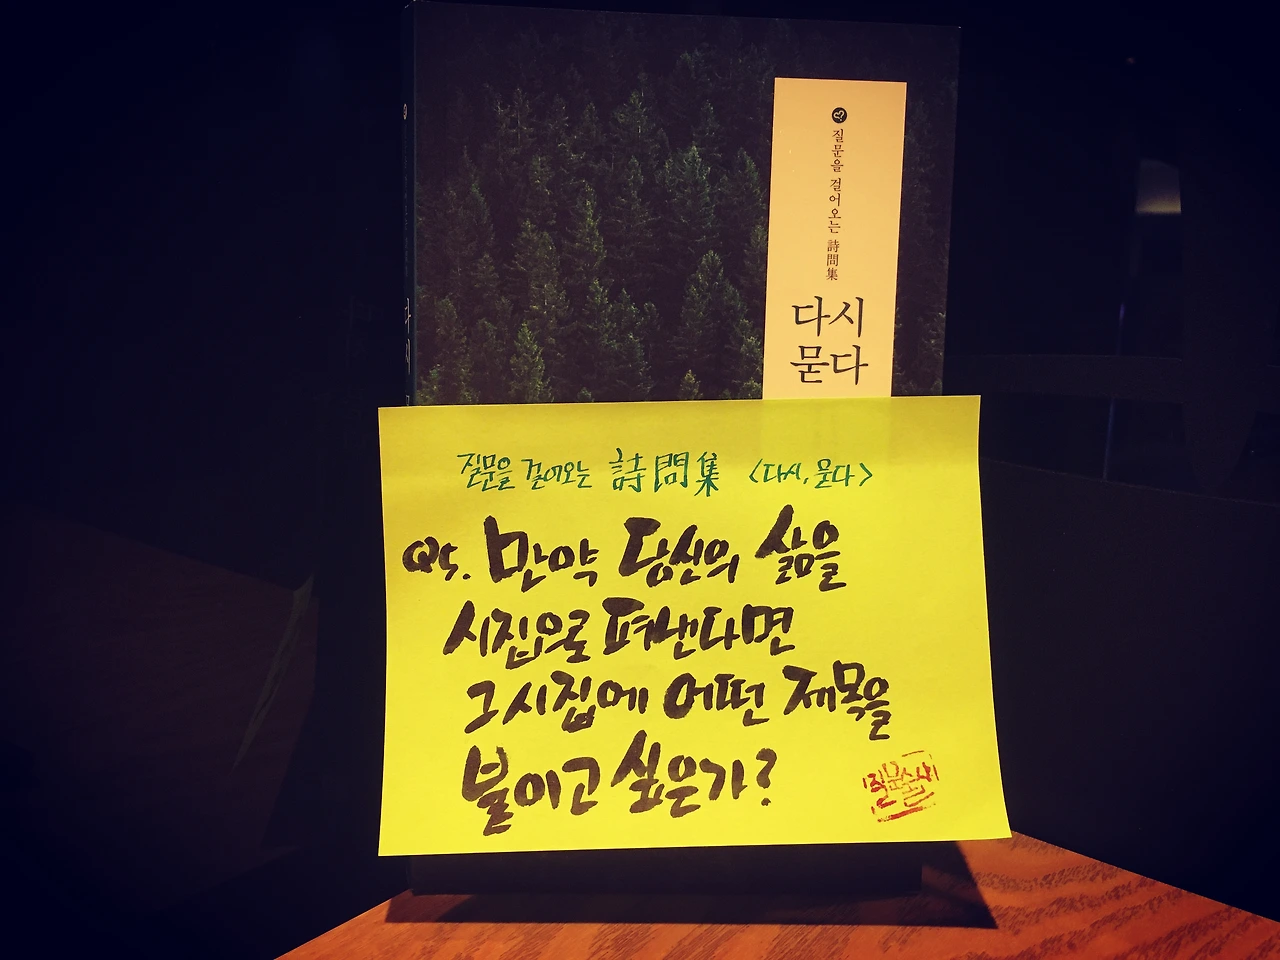 질문을 걸어오는 詩問集
다시
묻다
질문을 걸어오는 詩問集 <다시, 묻다>
Q5. 만약 당신의 삶을
시집으로 펴낸다면
그 시집에 어떤 제목을
붙이고 싶은가?
질문술사